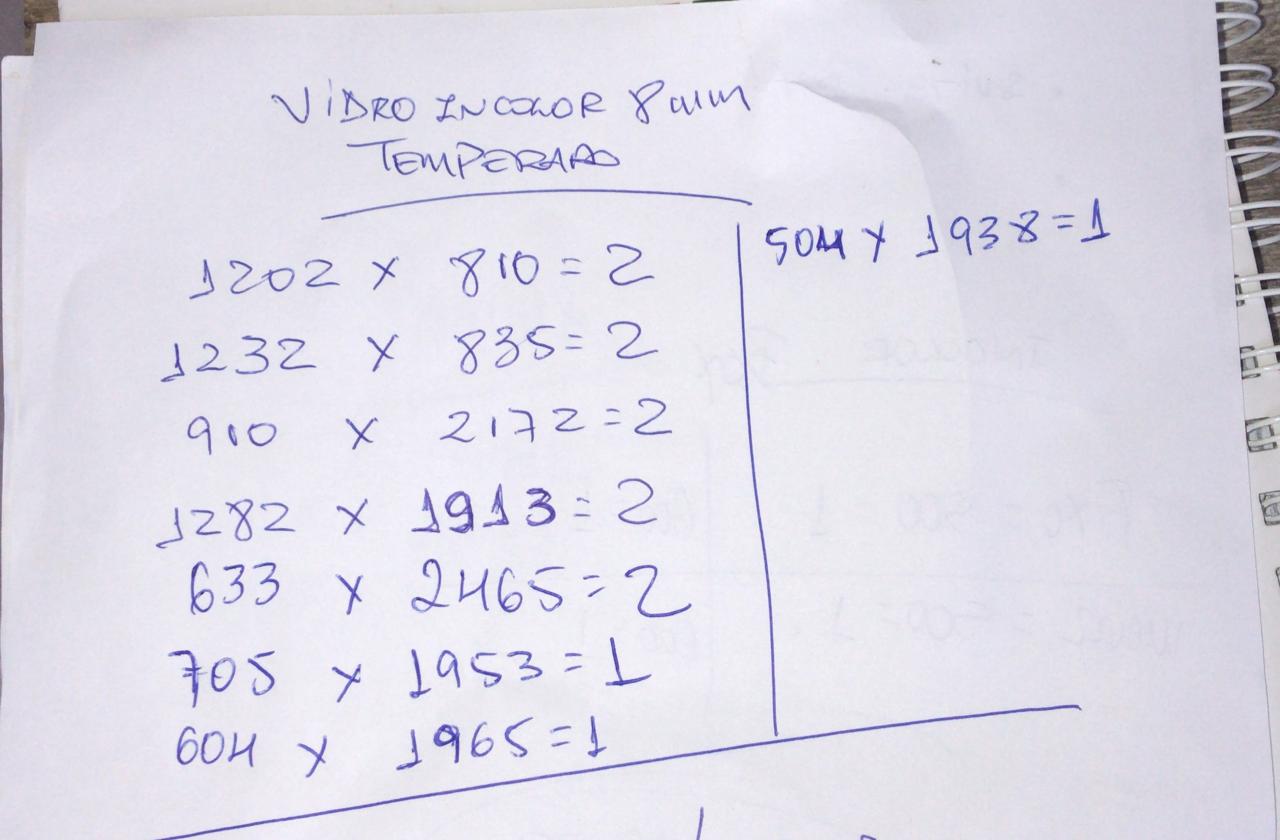 VIDRO INCOLOR 8mm
TEMPERADO
1202 x 810 = 2
1232 x 835 = 2
910 x 2172 = 2
1282 x 1913 = 2
633 x 2465 = 2
705 x 1953 = 1
604 x 1965 = 1
504 x 1938 = 1